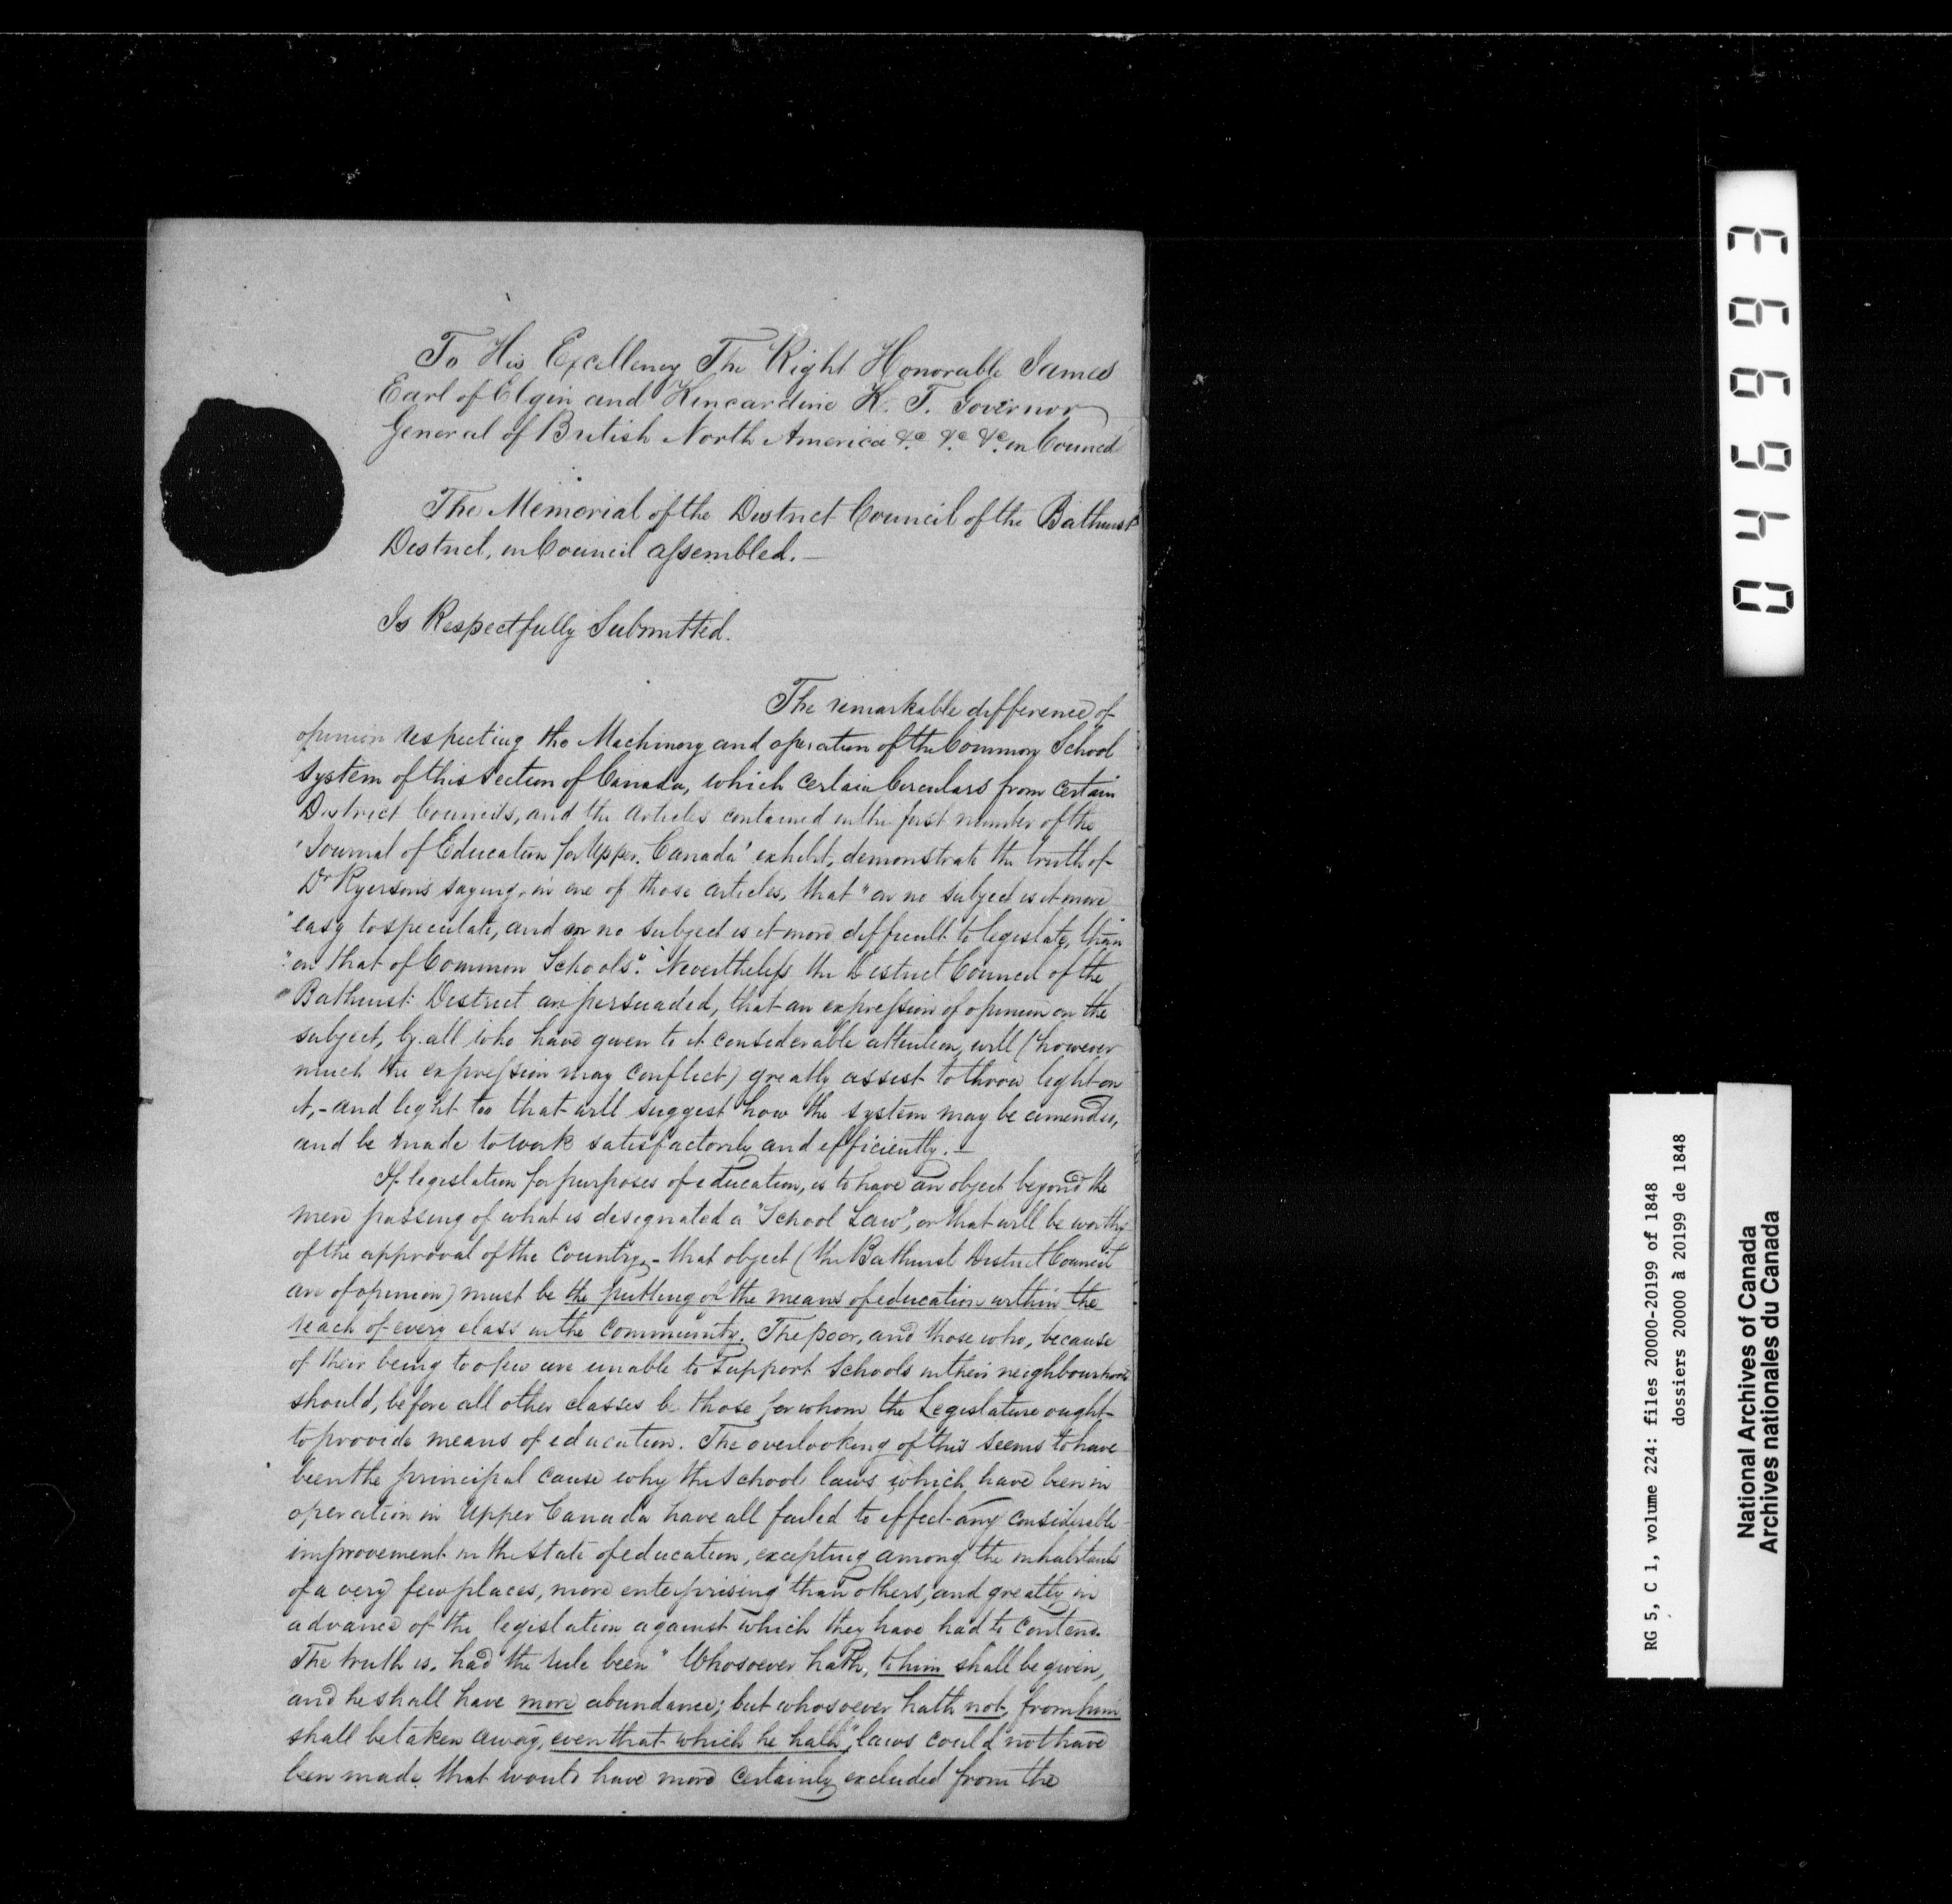 To His Excellency The Right Honorable James
Earl of Elgin and Kincardine K. T. Governor
General of British North America &c. &c. &c. in Council
The Memorial of the District Council of the Bathurst
District, in Council assembled.—
Is Respectfully Submitted.
The remarkable difference of
opinion respecting the Machinery and operation of the Common School
System of this section of Canada, which certain Circulars from certain
District Councils, and the articles contained in the first number of the
'Journal of Education for Upper Canada' exhibit, demonstrate the truth of
Dr Ryerson's saying, in one of those articles, that "on no subject is it more
"easy to speculate, and on no subject is it more difficult to legislate, than
"on that of Common Schools". Nevertheless the District Council of the
Bathurst District are persuaded, that an expression of opinion on the
subject, by all who have given to it considerable attention, will (however
much the expression may conflict) greatly assist to throw light on
it,- and light too that will suggest how the system may be amended,
and be made to work satisfactorily and efficiently.—
If legislation for purposes of education, is to have an object beyond the
mere passing of what is designated a "School Law", or that will be worthy
of the approval of the Country,- that object (the Bathurst District Council
are of opinion) must be the putting of the means of education within the
reach of every class in the Community. The poor, and those who, because
of their being too few are unable to support Schools in their neighbourhood
should, before all other classes be those for whom the Legislature ought
to provide means of education. The overlooking of this seems to have
been the principal cause why the School laws which have been in
operation in Upper Canada have all failed to effect any considerable
improvement in the state of education, excepting among the inhabitants
of a very few places, more enterprising than others, and greatly in
advance of the legislation against which they have had to contend.
The truth is, had the rule been "Whosoever hath, to him shall be given,
and he shall have more abundance; but whosoever hath not, from him
shall be taken away, even that which he hath", laws could not have
been made that would have more certainly excluded from the
046993
RG 5, C 1, volume 224: files 20000-20199 of 1848
dossiers 20000 à 20199 de 1848
National Archives of Canada
Archives nationales du Canada